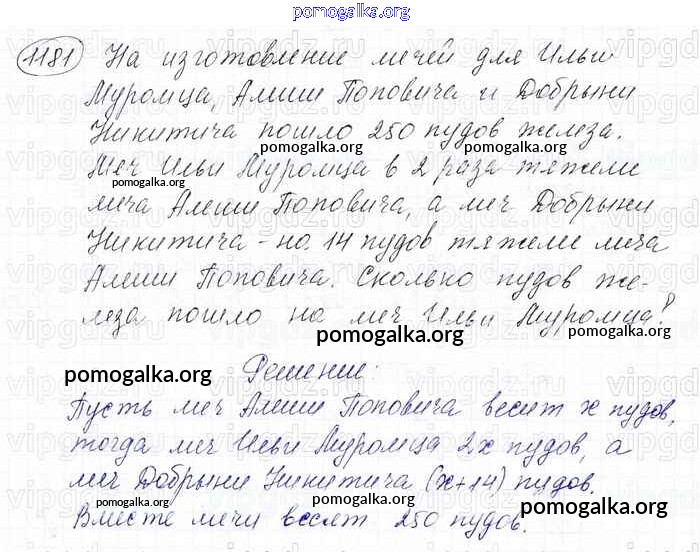 pomogalka.org
1181 На изготовление мечей для Ильи
Муромца, Алеши Поповича и Добрыни
Никитича пошло 250 пудов железа.
Меч Ильи Муромца в 2 раза тяжелее
pomogalka.org pomogalka.org
меча Алеши Поповича, а меч Добрыни
Никитича - на 14 пудов тяжелее меча
Алеши Поповича. Сколько пудов же-
леза пошло на меч Ильи Муромца?
pomogalka.org pomogalka.org
Решение:
pomogalka.org
Пусть меч Алеши Поповича весит x пудов,
тогда меч Ильи Муромца 2x пудов, а
меч Добрыни Никитича (x+14) пудов.
pomogalka.org pomogalka.org pomogalka.org
Вместе мечи весят 250 пудов.